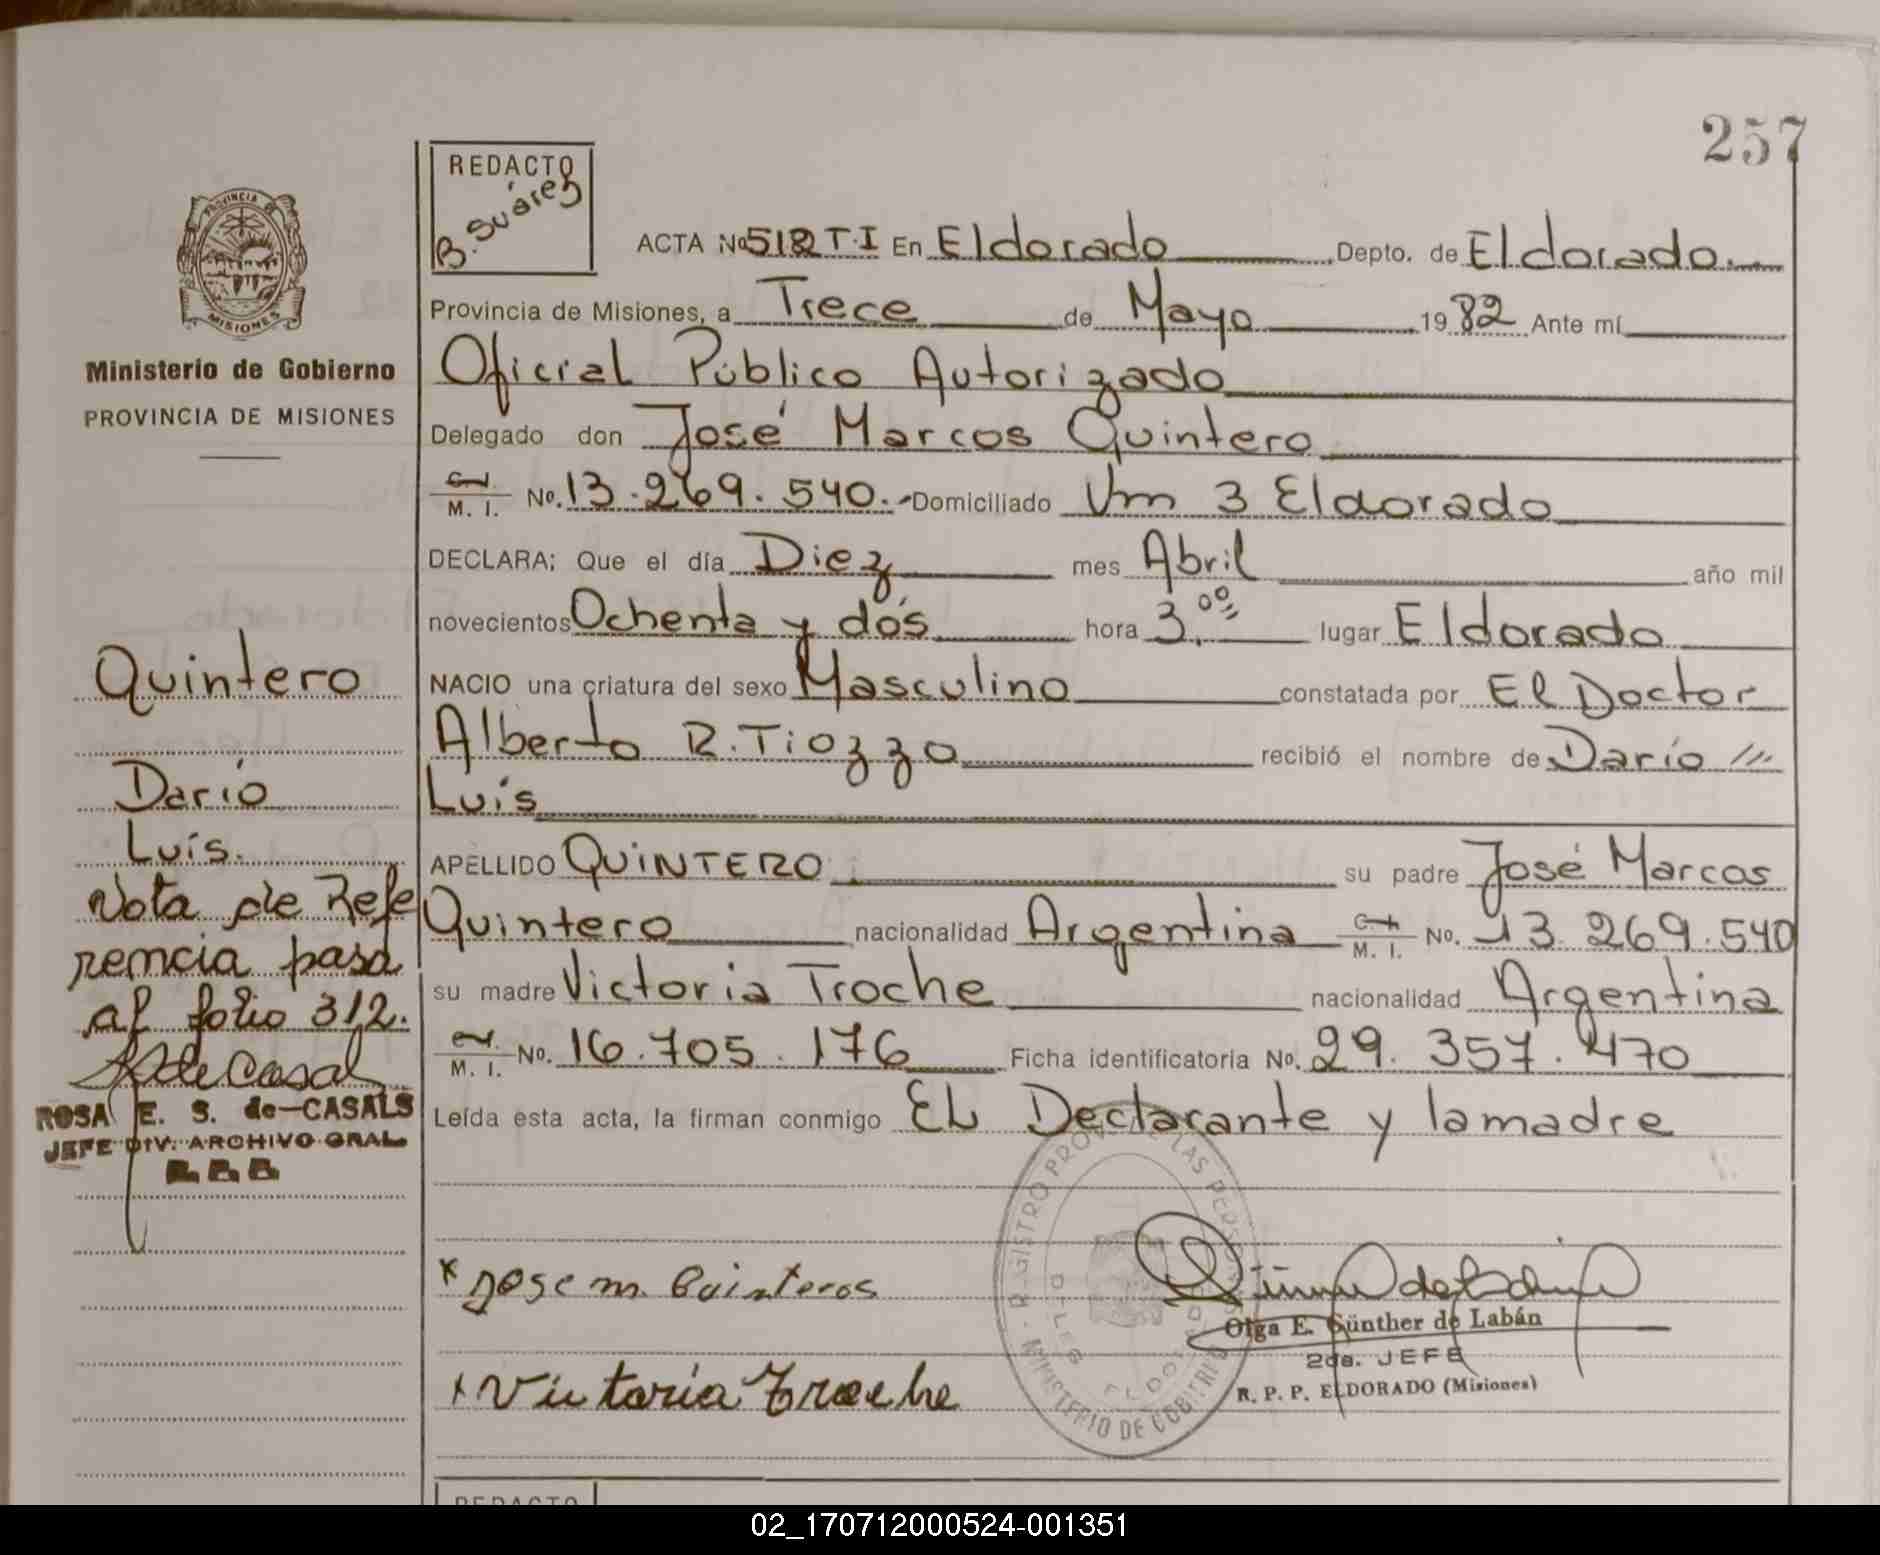 257
REDACTO
B. Suárez
PROVINCIA DE
MISIONES
Ministerio de Gobierno
PROVINCIA DE MISIONES
ACTA No 512 T.I En Eldorado Depto. de Eldorado
Provincia de Misiones, a Trece de Mayo 1982 Ante mí
Oficial Público Autorizado
Delegado don José Marcos Quintero
C.I. M. I. No. 13.269.540.- Domiciliado Km 3 Eldorado
DECLARA; Que el día Diez mes Abril año mil
novecientos Ochenta y dos hora 3.00 lugar Eldorado
NACIO una criatura del sexo Masculino constatada por El Doctor
Alberto R. Tiozzo recibió el nombre de Darío ///
Luis
APELLIDO QUINTERO su padre José Marcos
Quintero nacionalidad Argentina C.I. M. I. No. 13.269.540
su madre Victoria Troche nacionalidad Argentina
C.I. M. I. No. 16.705.176 Ficha identificatoria No. 29.357.470
Leída esta acta, la firman conmigo EL Declarante y la madre
Quintero
Darío
Luís.
Nota de Refe
rencia pasa
al folio 312.
ROSA E. S. de-CASALS
JEFE DIV. ARCHIVO GRAL
x Jose m. Quinteros
x Victoria Troche
REGISTRO PROV. DE LAS PERSONAS
MINISTERIO DE GOBIERNO
ELDORADO
Olga E. Günther de Labán
2da. JEFE
R. P. P. ELDORADO (Misiones)
REDACTO
02_170712000524-001351